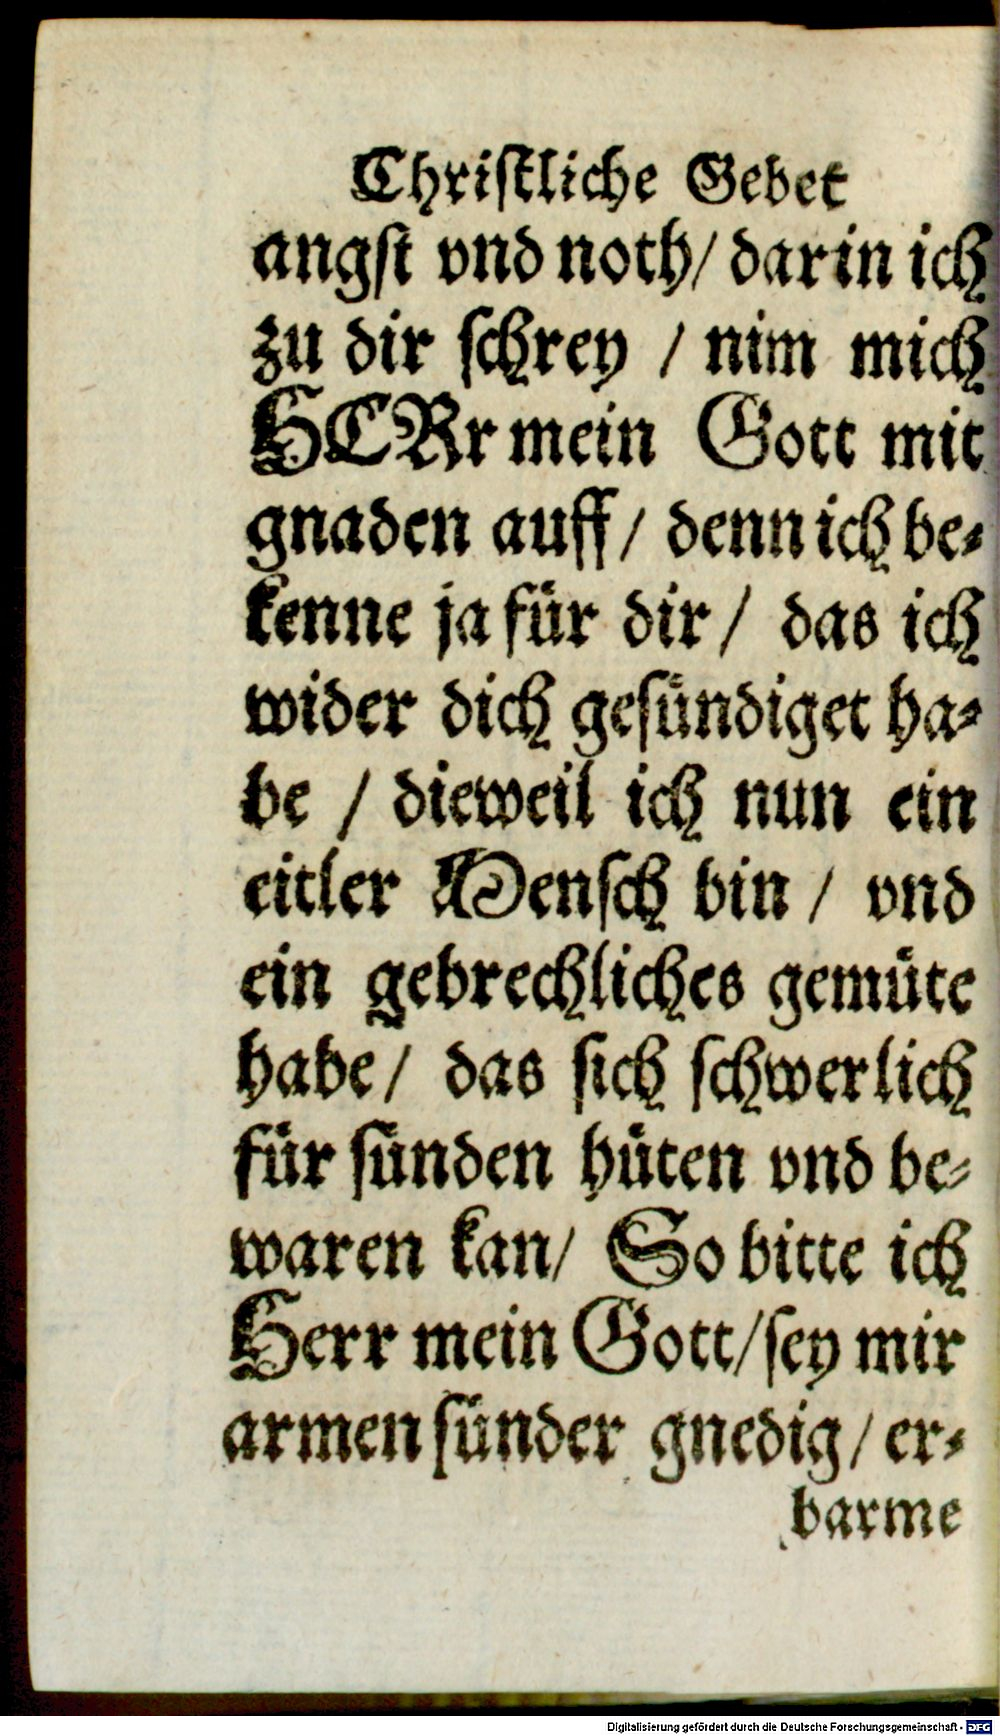 Christliche Gebet
angst vnd noth/ darin ich
zu dir schrey / nim mich
HERr mein Gott mit
gnaden auff/ denn ich be⸗
kenne ja für dir/ das ich
wider dich gesündiget ha⸗
be / dieweil ich nun ein
eitler Mensch bin / vnd
ein gebrechliches gemüte
habe/ das sich schwerlich
für sünden hüten vnd be⸗
waren kan/ So bitte ich
Herr mein Gott/ sey mir
armen sünder gnedig/ er⸗
barme
Digitalisierung gefördert durch die Deutsche Forschungsgemeinschaft - DFG